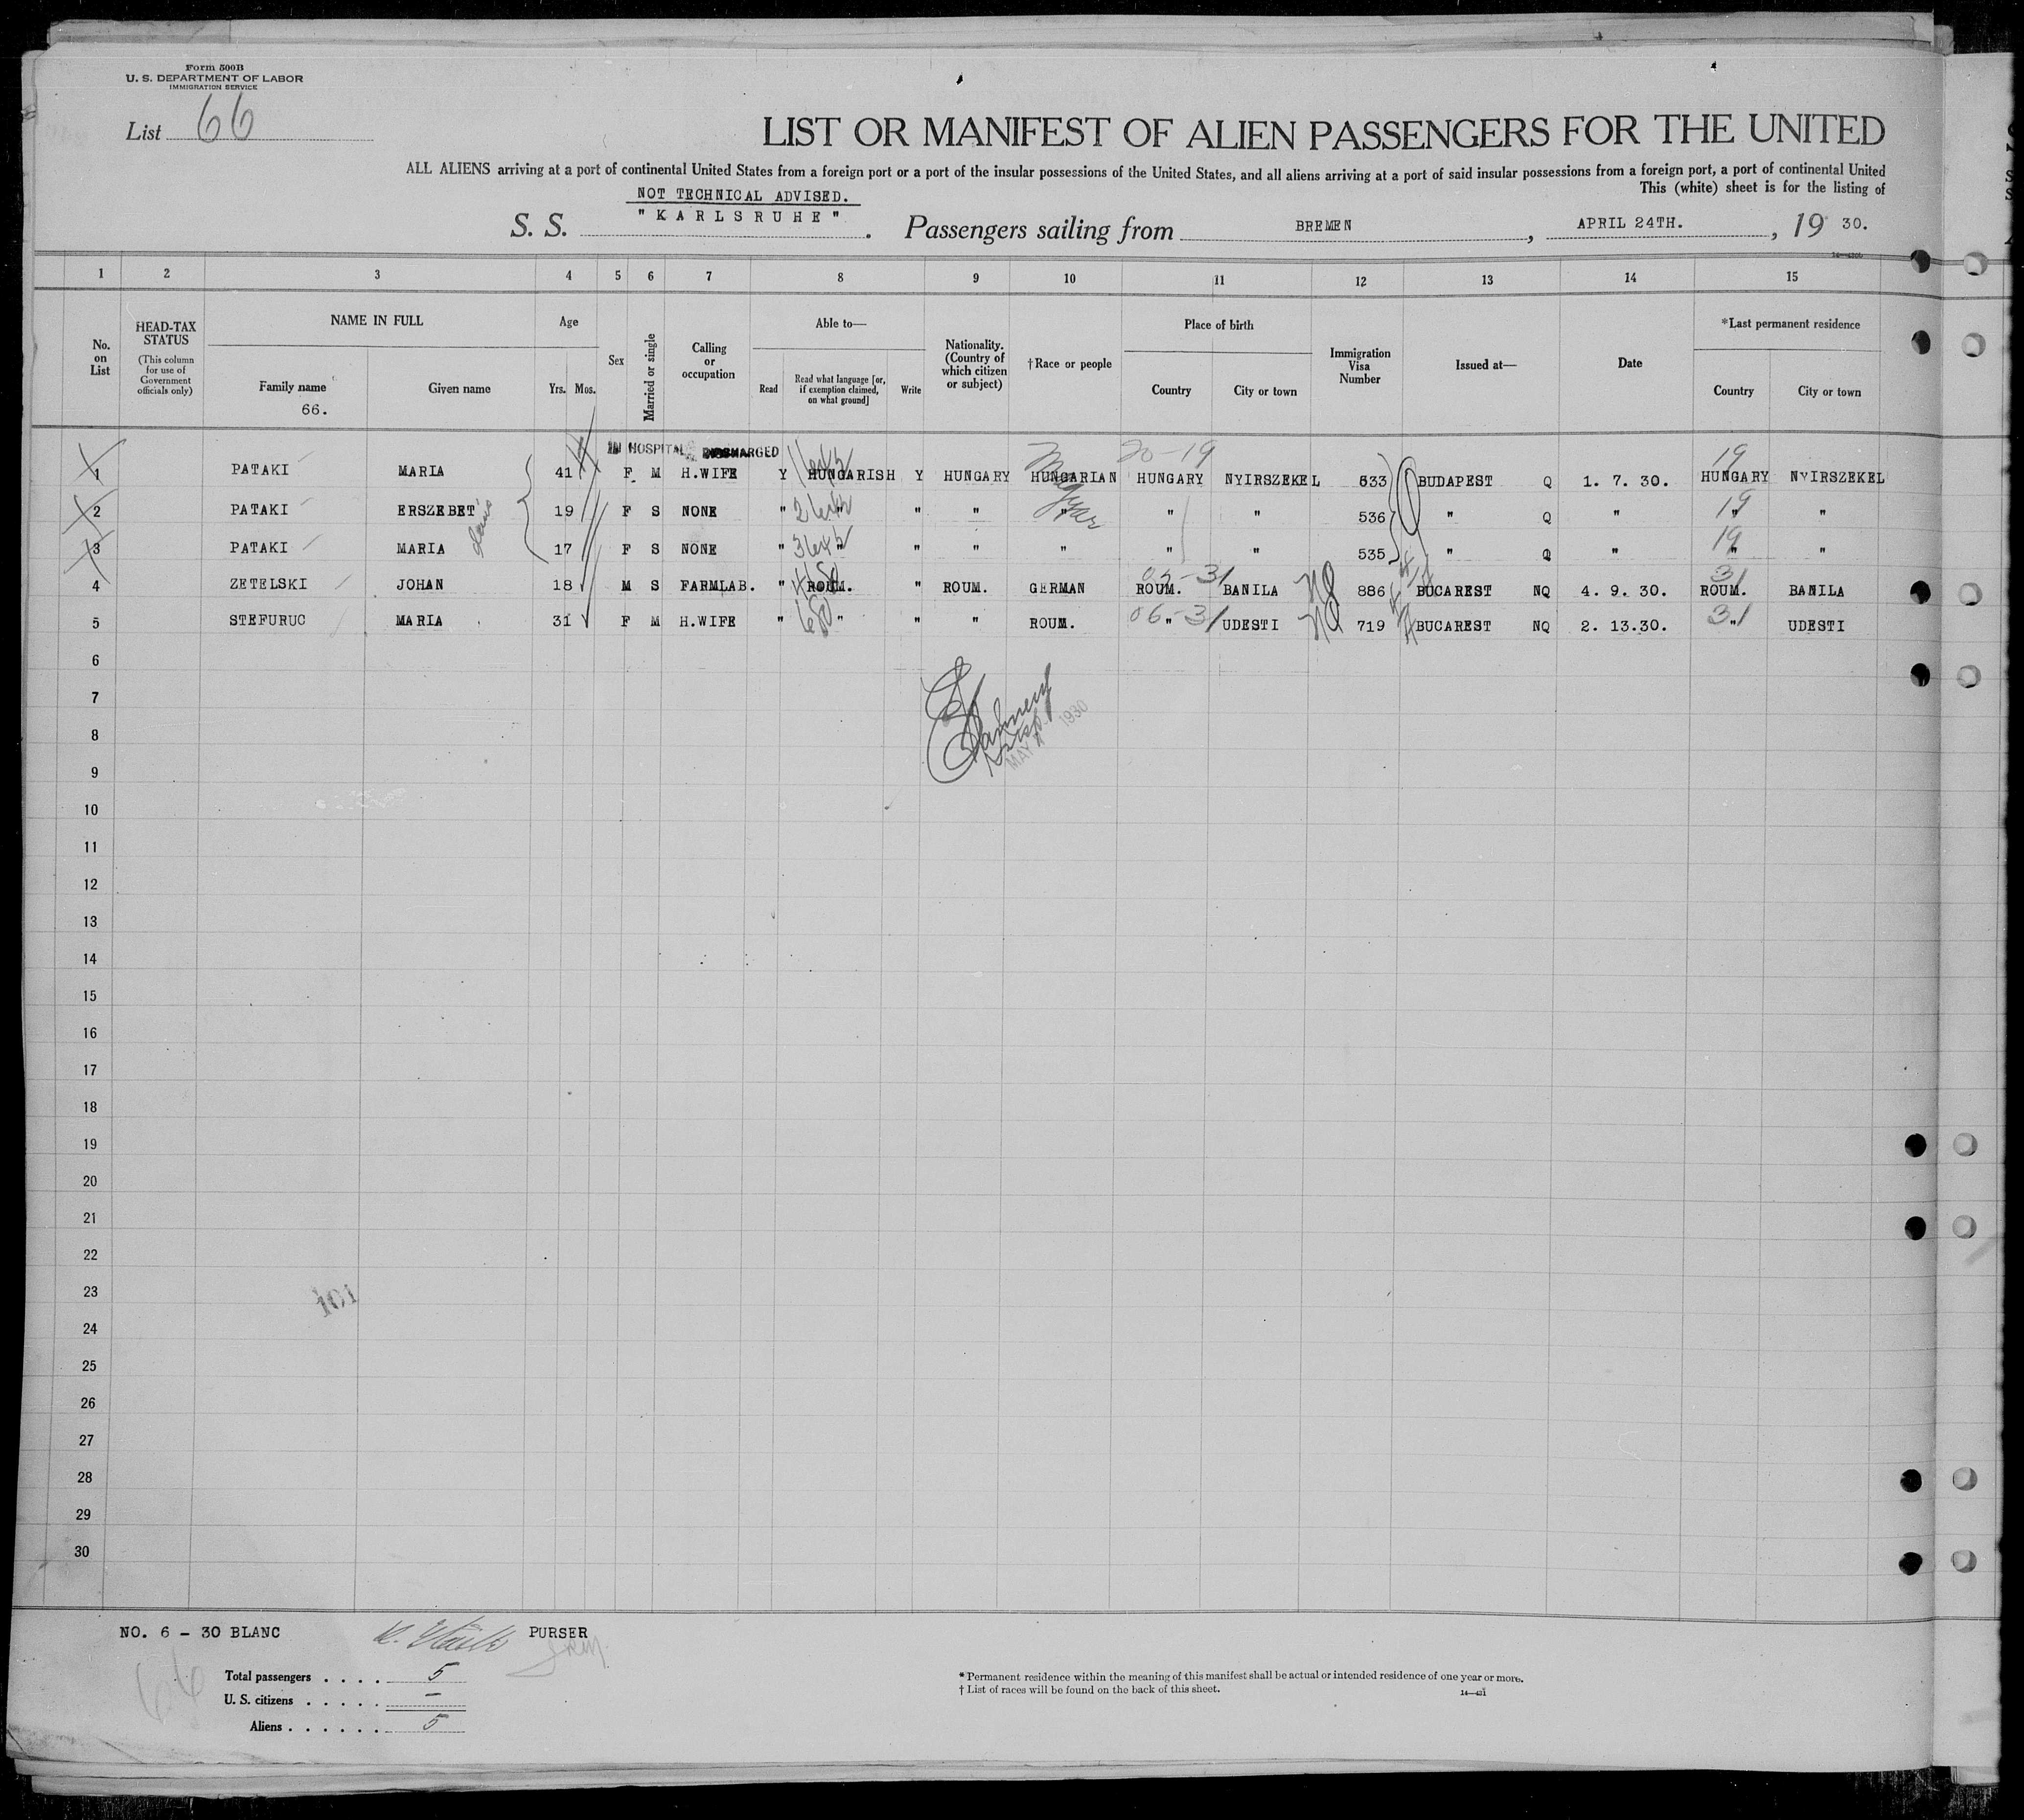 Form 500B
U. S. DEPARTMENT OF LABOR
IMMIGRATION SERVICE
List 66
LIST OR MANIFEST OF ALIEN PASSENGERS FOR THE UNITED
ALL ALIENS arriving at a port of continental United States from a foreign port or a port of the insular possessions of the United States, and all aliens arriving at a port of said insular possessions from a foreign port, a port of continental United
This (white) sheet is for the listing of
NOT TECHNICAL ADVISED.
S. S. "KARLSRUHE". Passengers sailing from BREMEN, APRIL 24TH., 19 30.
1 2 3 4 5 6 7 8 9 10 11 12 13 14 15
No. on List
HEAD-TAX STATUS
(This column for use of Government officials only)
NAME IN FULL
Family name
66.
Given name
Age
Yrs. Mos.
Sex
Married or single
Calling or occupation
Able to—
Read
Read what language [or, if exemption claimed, on what ground]
Write
Nationality. (Country of which citizen or subject)
†Race or people
Place of birth
Country
City or town
Immigration Visa Number
Issued at—
Date
*Last permanent residence
Country
City or town
IN HOSPITAL DISCHARGED
20-19
19
1 PATAKI MARIA 41 F M H.WIFE Y HUNGARISH Y HUNGARY HUNGARIAN HUNGARY NYIRSZEKEL 533 BUDAPEST Q 1. 7. 30. HUNGARY NYIRSZEKEL
Magyar
2 PATAKI ERSZEBET 19 F S NONE " " " " " " " 536 " Q " 19 " "
3 PATAKI MARIA 17 F S NONE " " " " " " " 535 " Q " 19 " "
4 ZETELSKI JOHAN 18 M S FARMLAB. " ROUM. " ROUM. GERMAN 05-31 ROUM. BANILA NQ 886 BUCAREST NQ 4. 9. 30. 31 ROUM. BANILA
5 STEFURUC MARIA 31 F M H.WIFE " " " " ROUM. 06-31 " UDESTI NQ 719 BUCAREST NQ 2. 13.30. 31 " UDESTI
6
7
MAY 1930
8
9
10
11
12
13
14
15
16
17
18
19
20
21
22
23
101
24
25
26
27
28
29
30
NO. 6 - 30 BLANC PURSER
Total passengers . . . . 5
U. S. citizens . . . . . . –
Aliens . . . . . . 5
*Permanent residence within the meaning of this manifest shall be actual or intended residence of one year or more.
†List of races will be found on the back of this sheet.